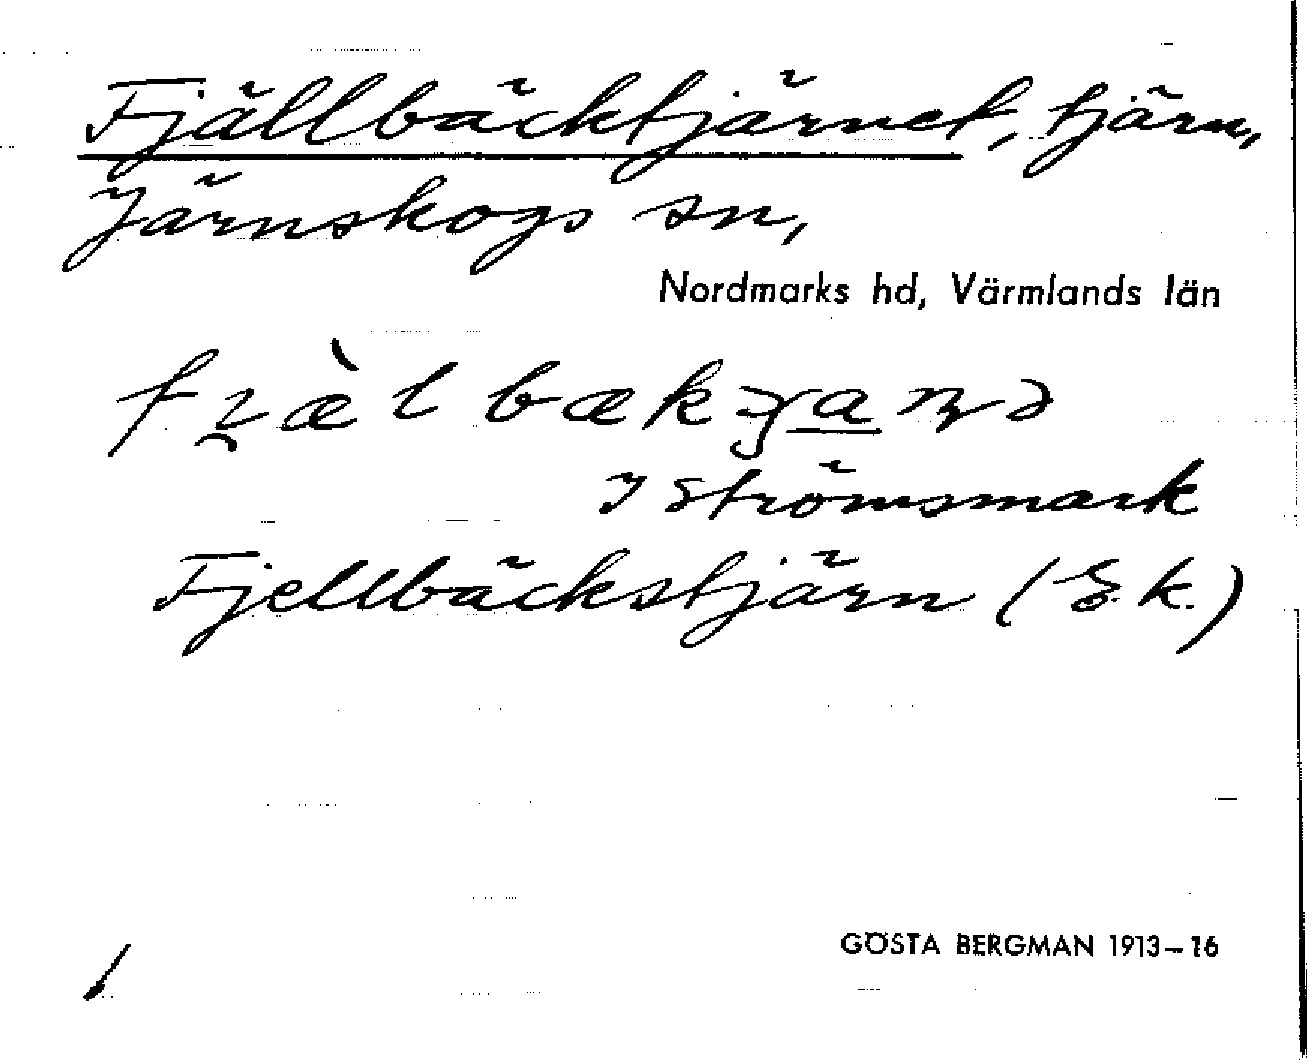 Fjällbäcktjärnet, tjärn,
Järnskogs sn,
Nordmarks hd, Värmlands län
I Strömsmark
Fjellbäckstjärn (Ek.)
GÖSTA BERGMAN 1913–16